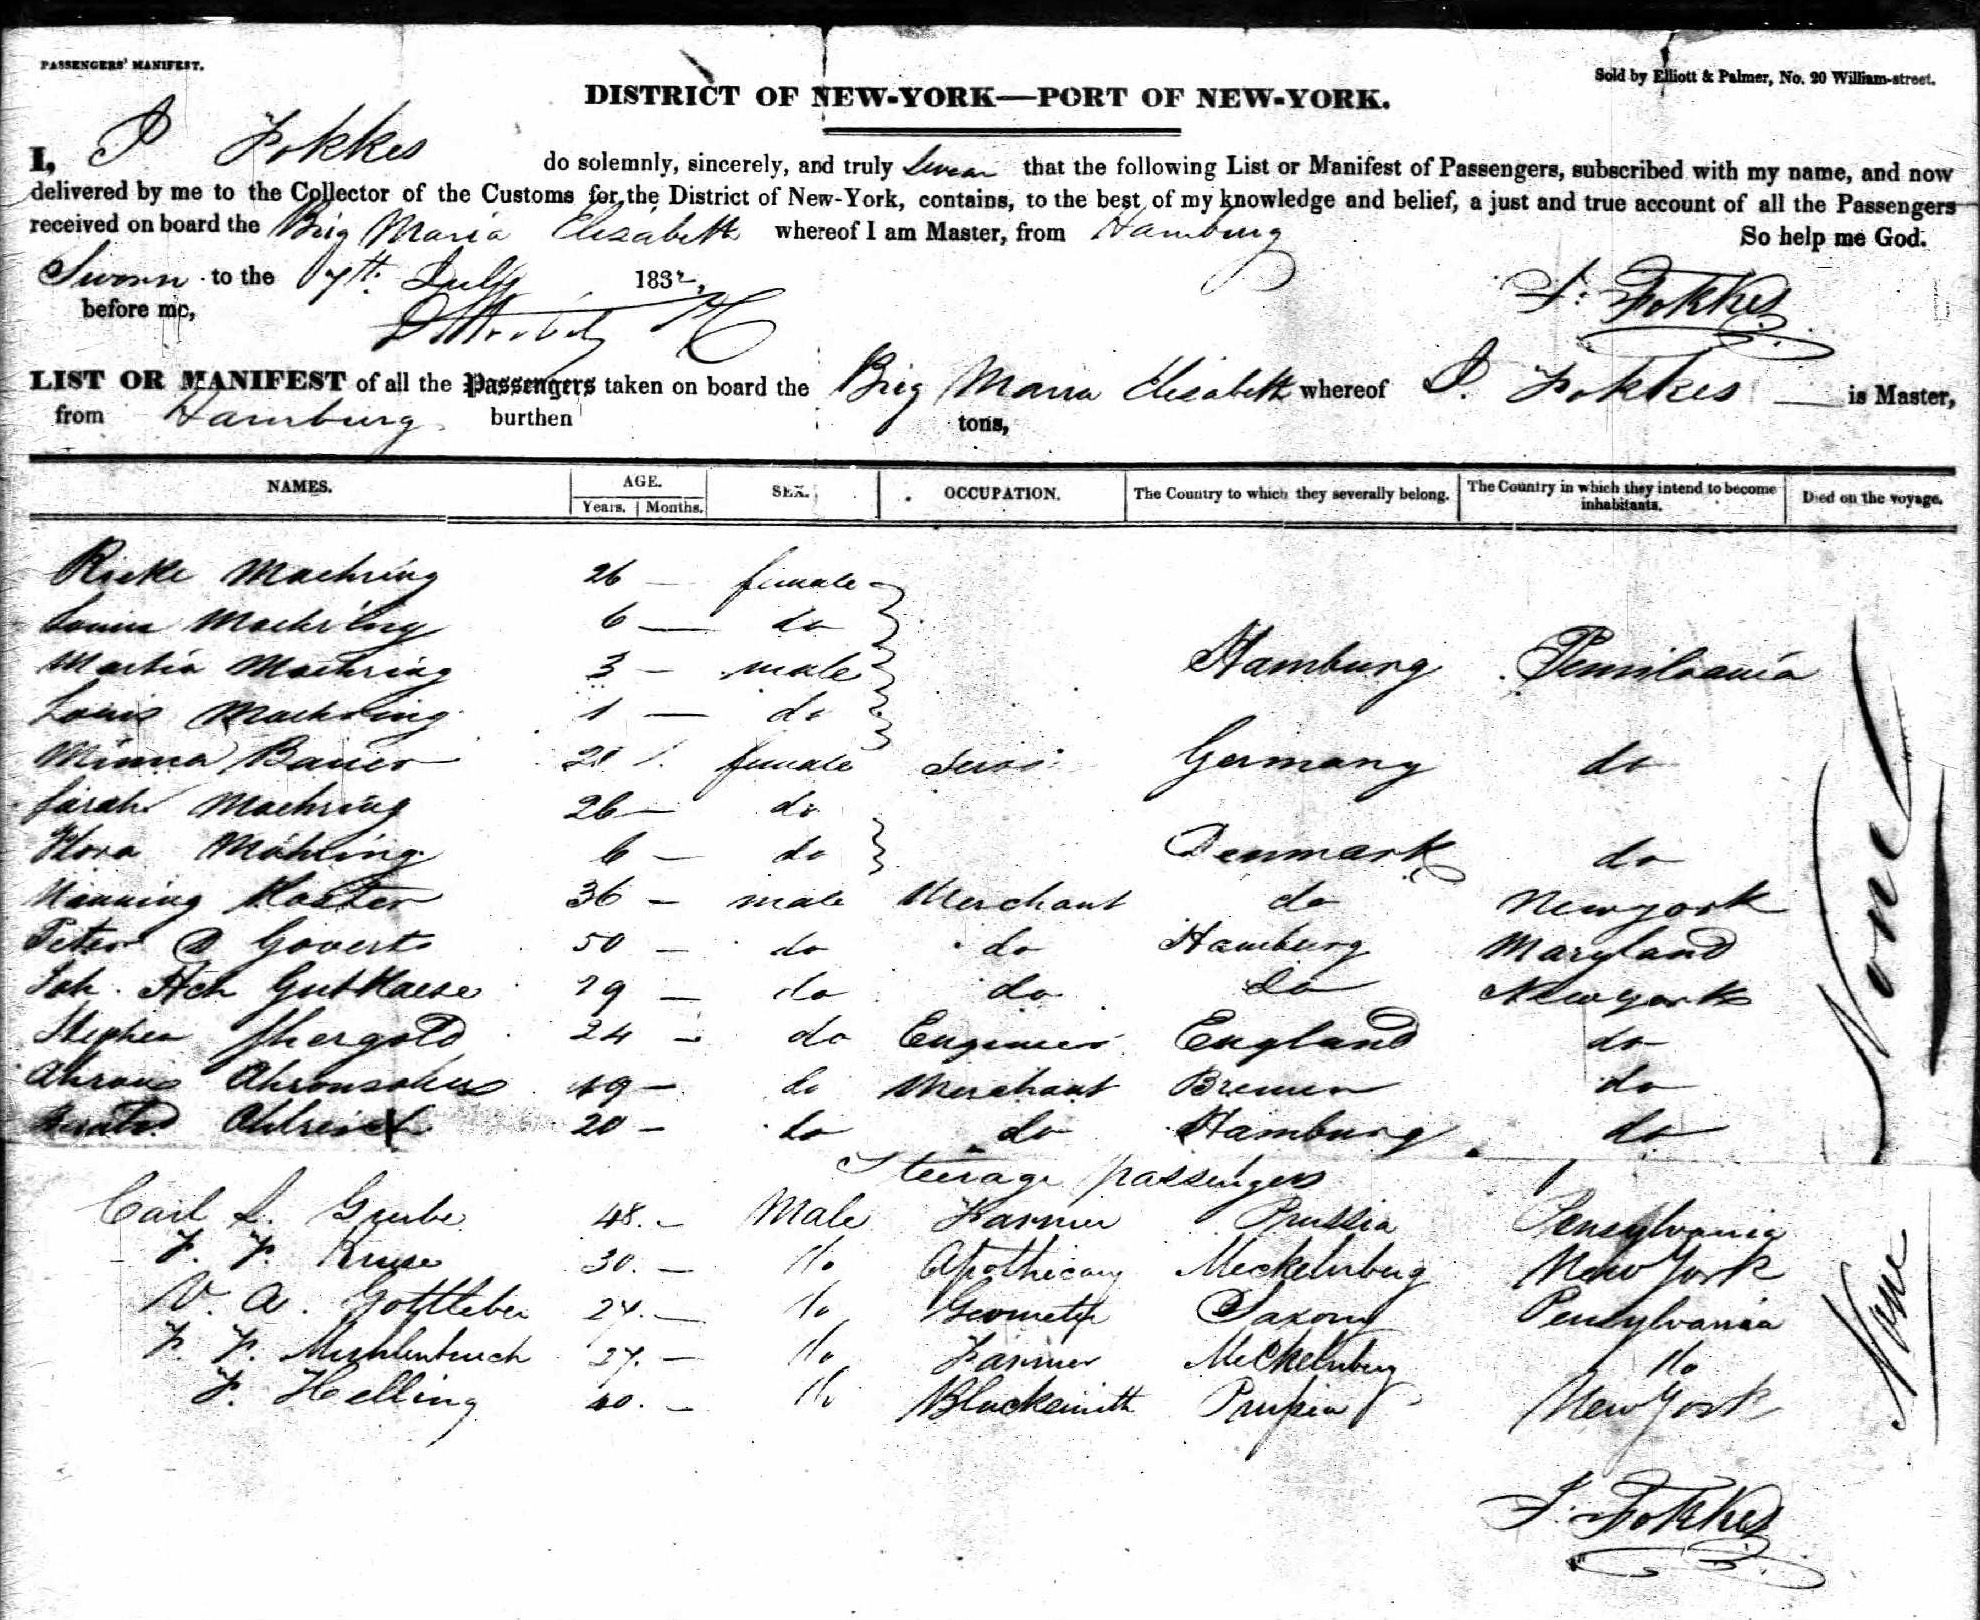 PASSENGERS' MANIFEST.
Sold by Elliott & Palmer, No. 20 William-street.
DISTRICT OF NEW-YORK—PORT OF NEW-YORK.
I, J Fokkes do solemnly, sincerely, and truly swear that the following List or Manifest of Passengers, subscribed with my name, and now
delivered by me to the Collector of the Customs for the District of New-York, contains, to the best of my knowledge and belief, a just and true account of all the Passengers
received on board the Brig Maria Elisabeth whereof I am Master, from Hamburg
So help me God.
Sworn to the 7th July 1832,
before me,
J. Fokkes
LIST OR MANIFEST of all the Passengers taken on board the Brig Maria Elisabeth whereof J. Fokkes — is Master,
from Hamburg burthen tons,
NAMES. AGE. SEX. OCCUPATION. The Country to which they severally belong. The Country in which they intend to become inhabitants. Died on the voyage.
Years. Months.
Rieke Maehring 26 — female
Maehring 6 — do
Martin Maehring 3 — male Hamburg Pensilvania
Louis Maehring 1 — do
Minna Bauer female Germany do
Sarah Maehring 26 — do
Flora Mähring 6 — do Denmark do
Koster 36 — male Merchant do Newyork
Peter D Goverts 50 — do do Hamburg Maryland
Joh. Hch Gutkaese 29 — do do do Newyork
Stephen Shergold 24 — do Engineer England do
Ahrons Ahronsohn 49 — do Merchant Bremen do
20 — do do Hamburg do
None
Steerage passengers
Carl L. Grube 48. — Male Farmer Prussia Pensylvania
F. F. Kruse 30. — do Apothicary Meckelnburg New York
W. A. Gottleber 24. — do Geometer Saxony Pensylvania
F. F. 27. — do Farmer Meckelnburg do
F. Helling 40. — do Blacksmith Prussia New York
None
J. Fokkes